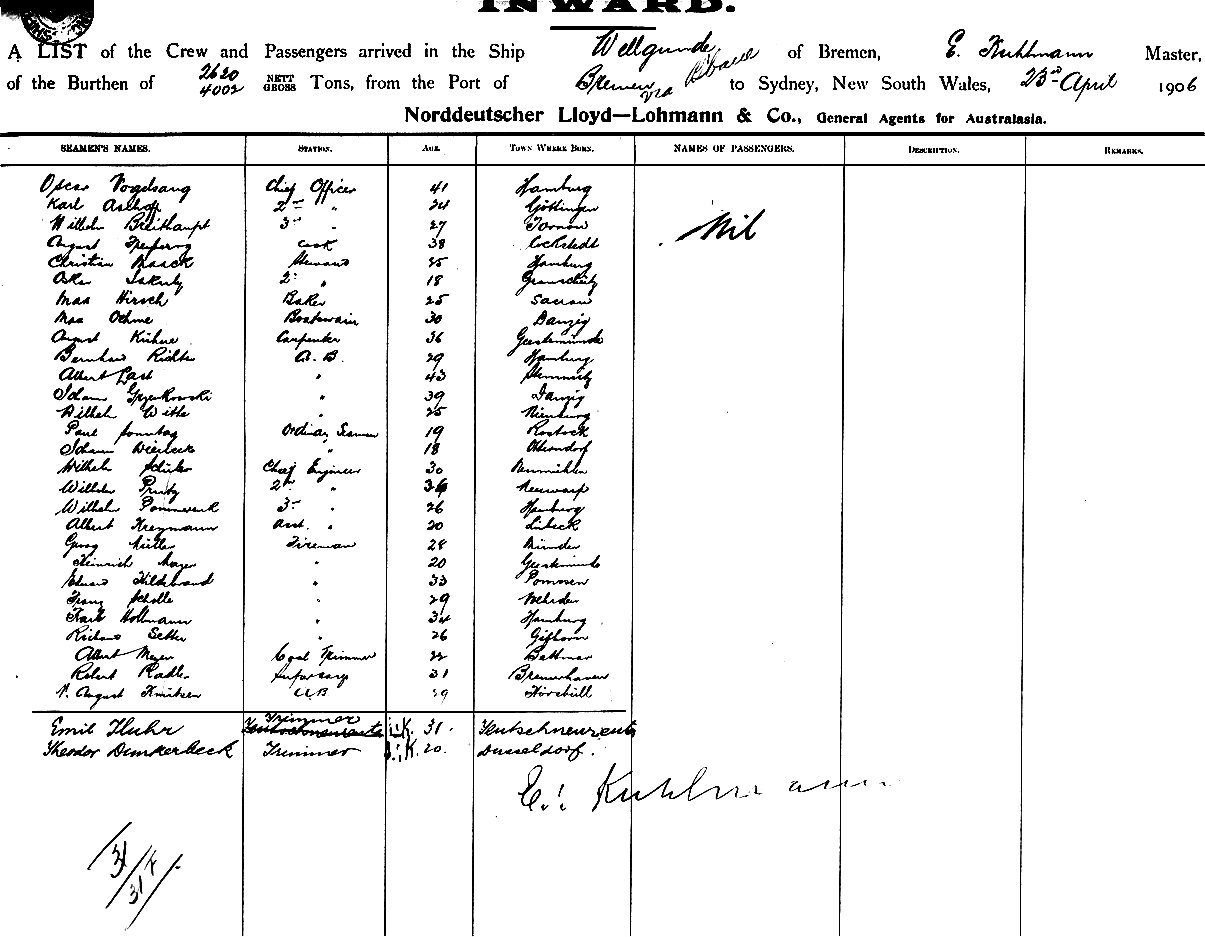 INWARD.
A LIST of the Crew and Passengers arrived in the Ship Wellgunde of Bremen, E. Kuhlmann Master,
of the Burthen of 2620 4002 NETT GROSS Tons, from the Port of Bremen via to Sydney, New South Wales, 23rd April 1906
Norddeutscher Lloyd—Lohmann & Co., General Agents for Australasia.
SEAMEN'S NAMES. STATION. AGE. TOWN WHERE BORN. NAMES OF PASSENGERS. DESCRIPTION. REMARKS.
Oscar Vogelsang Chief Officer 41 Hamburg
Karl 2nd " 24 Göttingen
Wilhelm Breithaupt 3rd " 27 Tornow Nil
August Cook 38 Cockstedt
Christian Maack Steward 25 Hamburg
Oskar 2nd " 18
Max Hirsch Baker 25 Sacrow
Max Oehme Boatswain 30 Danzig
August Kühne Carpenter 36 Geestemünde
Bernhard Richter A.B. 29 Hamburg
Albert Last " 43
Johann " 39 Danzig
Wilhelm Witte " 25 Nienburg
Paul Sonntag Ordinary Seaman 19 Rostock
Johann " 18 Otterndorf
Wilhelm Chief Engineer 30
Wilhelm 2nd " 36 Neuwarp
Wilhelm 3rd " 26 Hamburg
Albert Kreymann Asst. " 20 Lübeck
Georg Müller Fireman 28 Münder
Heinrich Meyer " 20 Geestemünde
Eduard Hildebrand " 33 Pommsen
Franz Scholle " 29 Wehrden
Karl Hollmann " 34 Hamburg
Richard " 26 Gifhorn
Albert Meyer Coal Trimmer 22
Robert Radler 31 Bremerhaven
N. August Knutzen A.B. 29 Hörsbüll
Emil Huhr Trimmer 31.
Theodor Dunkerbeck Trimmer 20. Dusseldorf.
E. Kuhlmann
31
31